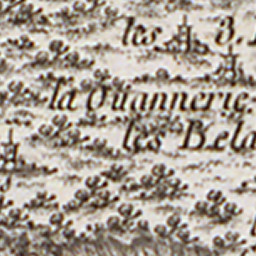 les 3.
la Ouannerie
les Bela